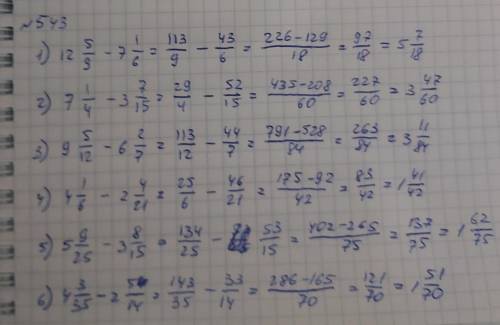 №543
1) 12 5/9 - 7 1/6 = 113/9 - 43/6 = (226-129)/18 = 97/18 = 5 7/18
2) 7 1/4 - 3 7/15 = 29/4 - 52/15 = (435-208)/60 = 227/60 = 3 47/60
3) 9 5/12 - 6 2/7 = 113/12 - 44/7 = (791-528)/84 = 263/84 = 3 11/84
4) 4 1/6 - 2 4/21 = 25/6 - 46/21 = (175-92)/42 = 83/42 = 1 41/42
5) 5 9/25 - 3 8/15 = 134/25 - 53/15 = (402-265)/75 = 137/75 = 1 62/75
6) 4 3/35 - 2 5/14 = 143/35 - 33/14 = (286-165)/70 = 121/70 = 1 51/70